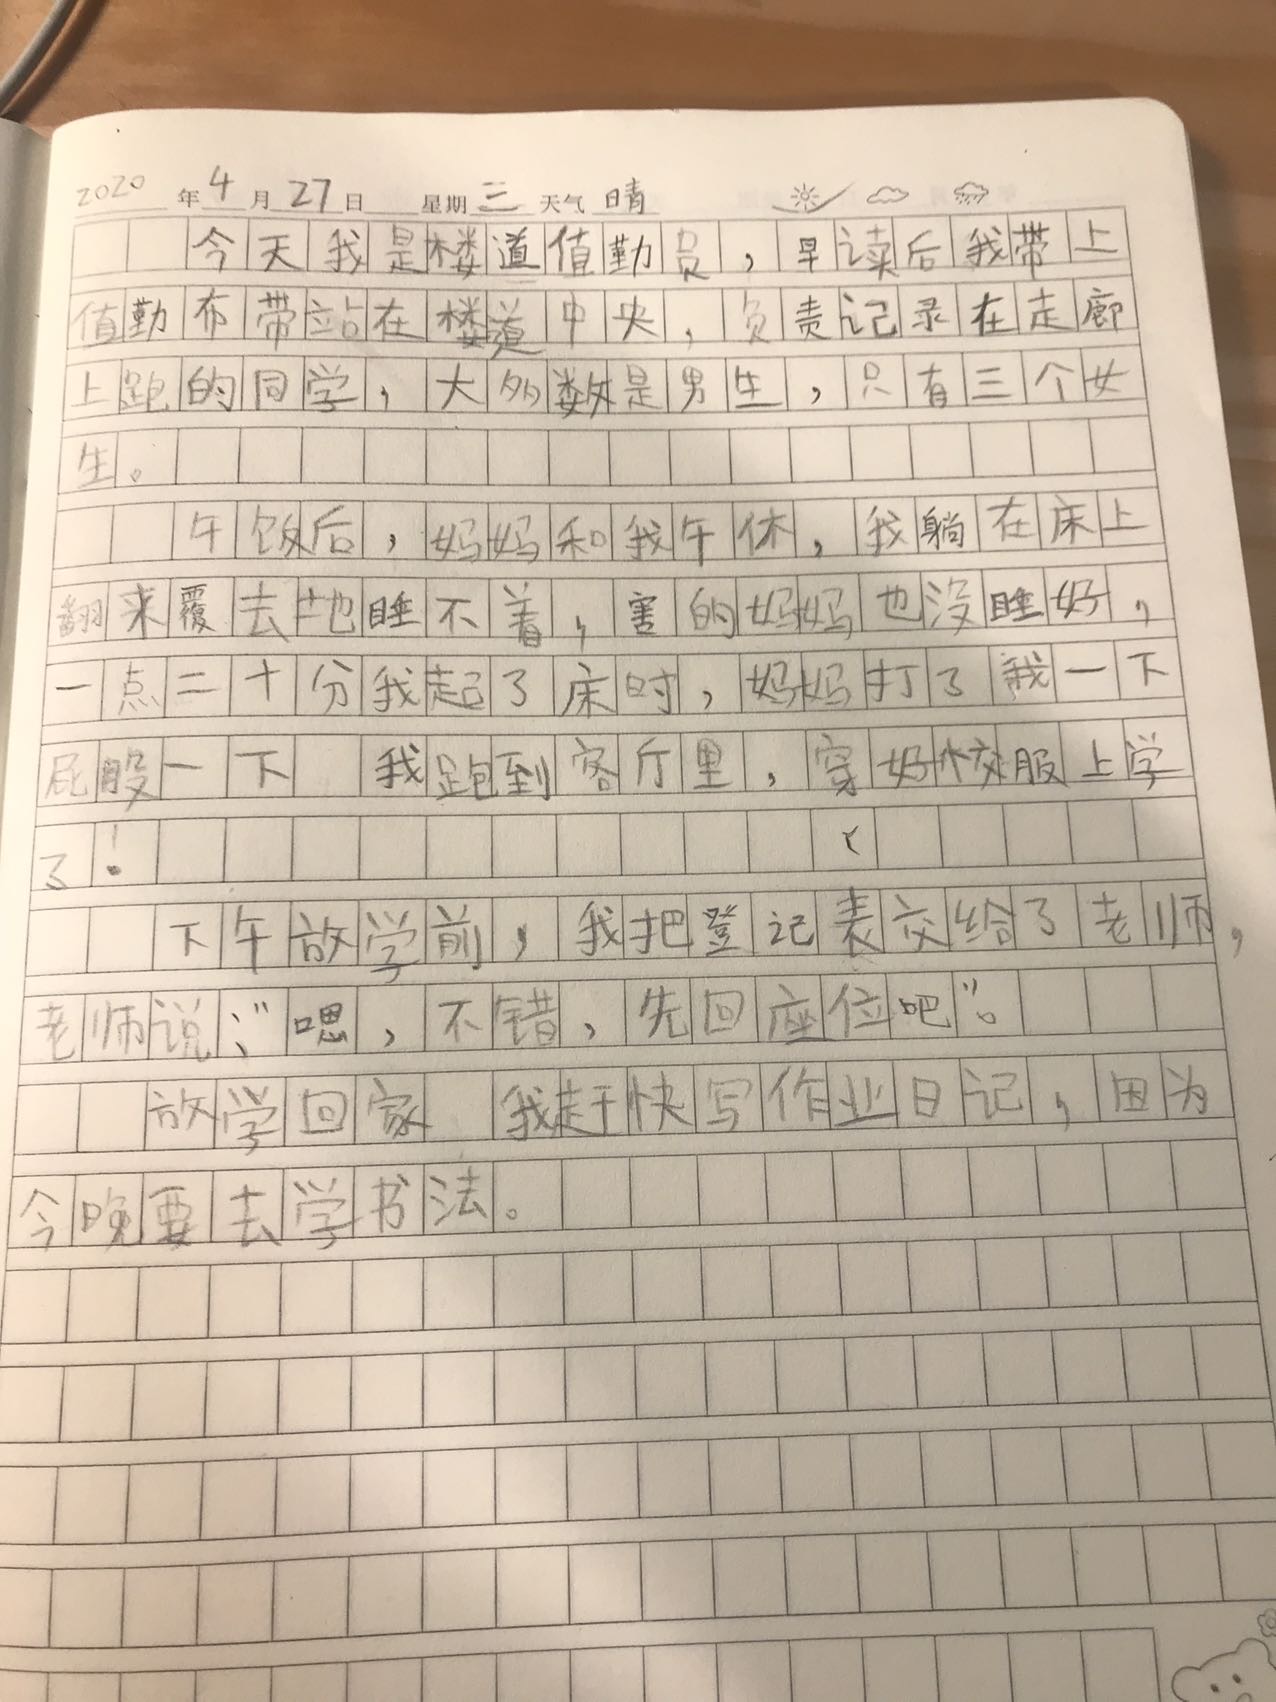 2020年4月27日 星期三 天气 晴
今天我是楼道值勤员，早读后我带上
值勤布带站在楼道中央，负责记录在走廊
上跑的同学，大多数是男生，只有三个女
生。
午饭后，妈妈和我午休，我躺在床上
翻来覆去地睡不着，害的妈妈也没睡好，
一点二十分我起了床时，妈妈打了我一下
屁股一下 我跑到客厅里，穿好校服上学
了！
下午放学前，我把登记表交给了老师，
老师说：“嗯，不错，先回座位吧”。
放学回家 我赶快写作业日记，因为
今晚要去学书法。